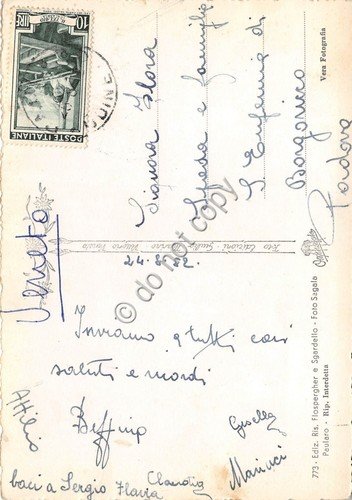 10 LIRE
IL CANTIERE
POSTE ITALIANE
UDINE
Signora Flora
e famiglia
S. Eufemia di
Borgoricco
Padova
Vera Fotografia
Veneto
24.8.52
Inviamo a tutti cari
saluti e
Beppino
Gisella
Attilio
baci a Sergio Flavia
Claudia
do not copy
773 - Ediz. Ris. Flospergher e Sgardello - Foto Sagala
Paularo - Rip. Interdetta